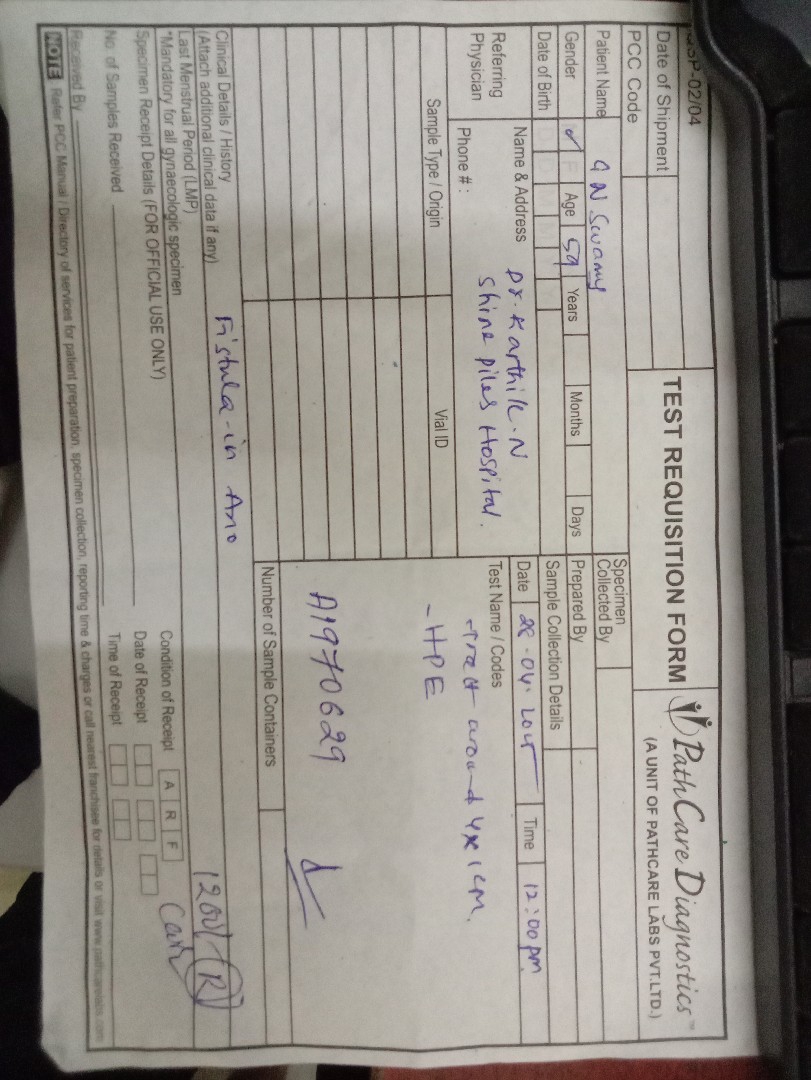 SP-02/04
TEST REQUISITION FORM
PathCare Diagnostics™
(A UNIT OF PATHCARE LABS PVT.LTD.)
Date of Shipment
PCC Code
Patient Name G N Swamy
Gender F Age 59 Years Months Days
Date of Birth
Referring Physician
Name & Address Dr. Karthik. N
Shine piles Hospital.
Phone # :
Specimen Collected By
Prepared By
Sample Collection Details
Date Time 12:00 pm
Test Name / Codes
- Tract around 4x1cm.
- HPE
Sample Type / Origin Vial ID
A1970629
Number of Sample Containers
Clinical Details / History
(Attach additional clinical data if any) Fistula-in Ano
Last Menstrual Period (LMP)
*Mandatory for all gynaecologic specimen
1200/- R
Cash
Specimen Receipt Details (FOR OFFICIAL USE ONLY)
Condition of Receipt A R F
No. of Samples Received
Date of Receipt
Received By
Time of Receipt
NOTE Refer PCC Manual / Directory of services for patient preparation, specimen collection, reporting time & charges or call nearest franchisee for details or visit www.pathcarelabs.com